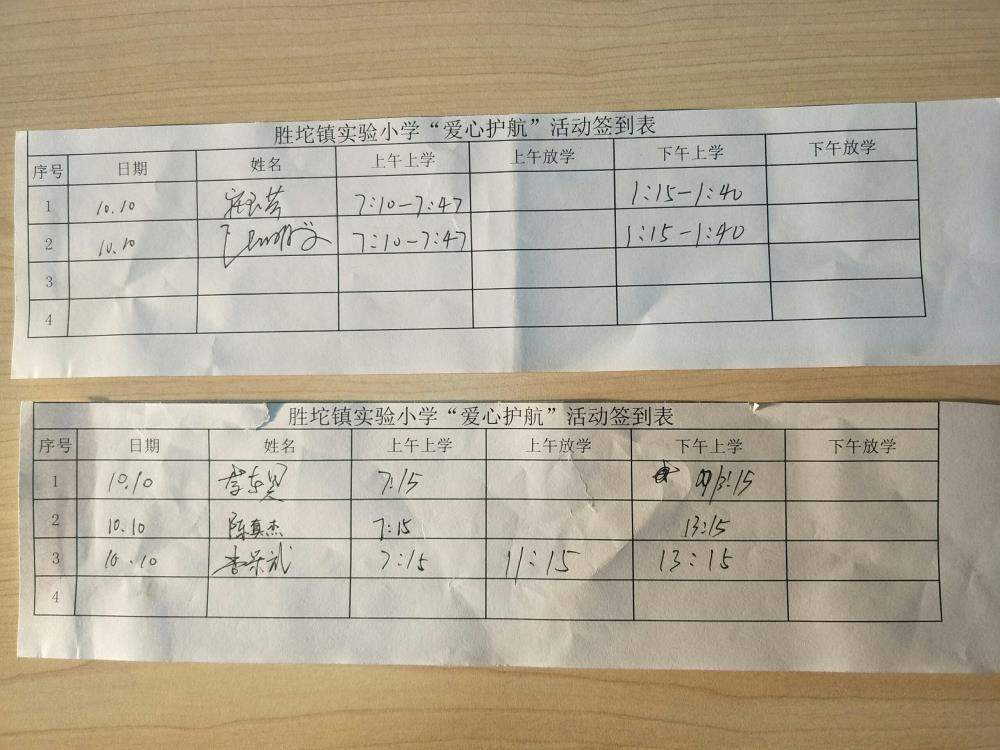 胜坨镇实验小学“爱心护航”活动签到表
序号 日期 姓名 上午上学 上午放学 下午上学 下午放学
1 10.10 7:10-7:47 1:15-1:40
2 10.10 7:10-7:47 1:15-1:40
3
4
胜坨镇实验小学“爱心护航”活动签到表
序号 日期 姓名 上午上学 上午放学 下午上学 下午放学
1 10.10 7:15 13:15
2 10.10 陈真杰 7:15 13:15
3 10.10 7:15 11:15 13:15
4